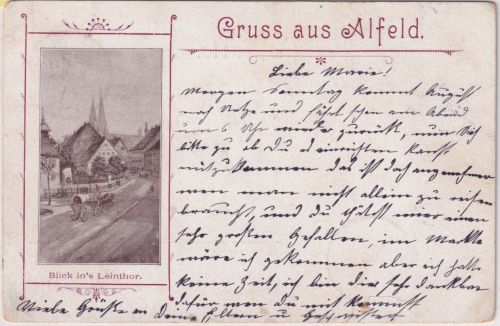 Gruss aus Alfeld.
Liebe Marie!
Morgen Sonntag kommt August
nach und fährt schon am Abend
um 6 Uhr wieder zurück, nun
bitte zu ob Du einrichten kannst
mitzukommen das ist doch angenehmer
wen man nicht allein zu reisen
braucht, und du thätest mir einen
sehr großen Gefallen, im
wäre ich gekommen aber ich hatte
keine Zeit, ich bin dir sehr dankbar
dafür wen du mit kommst
Viele Grüße an Deine Eltern u Geschwister
Blick in's Leinthor.